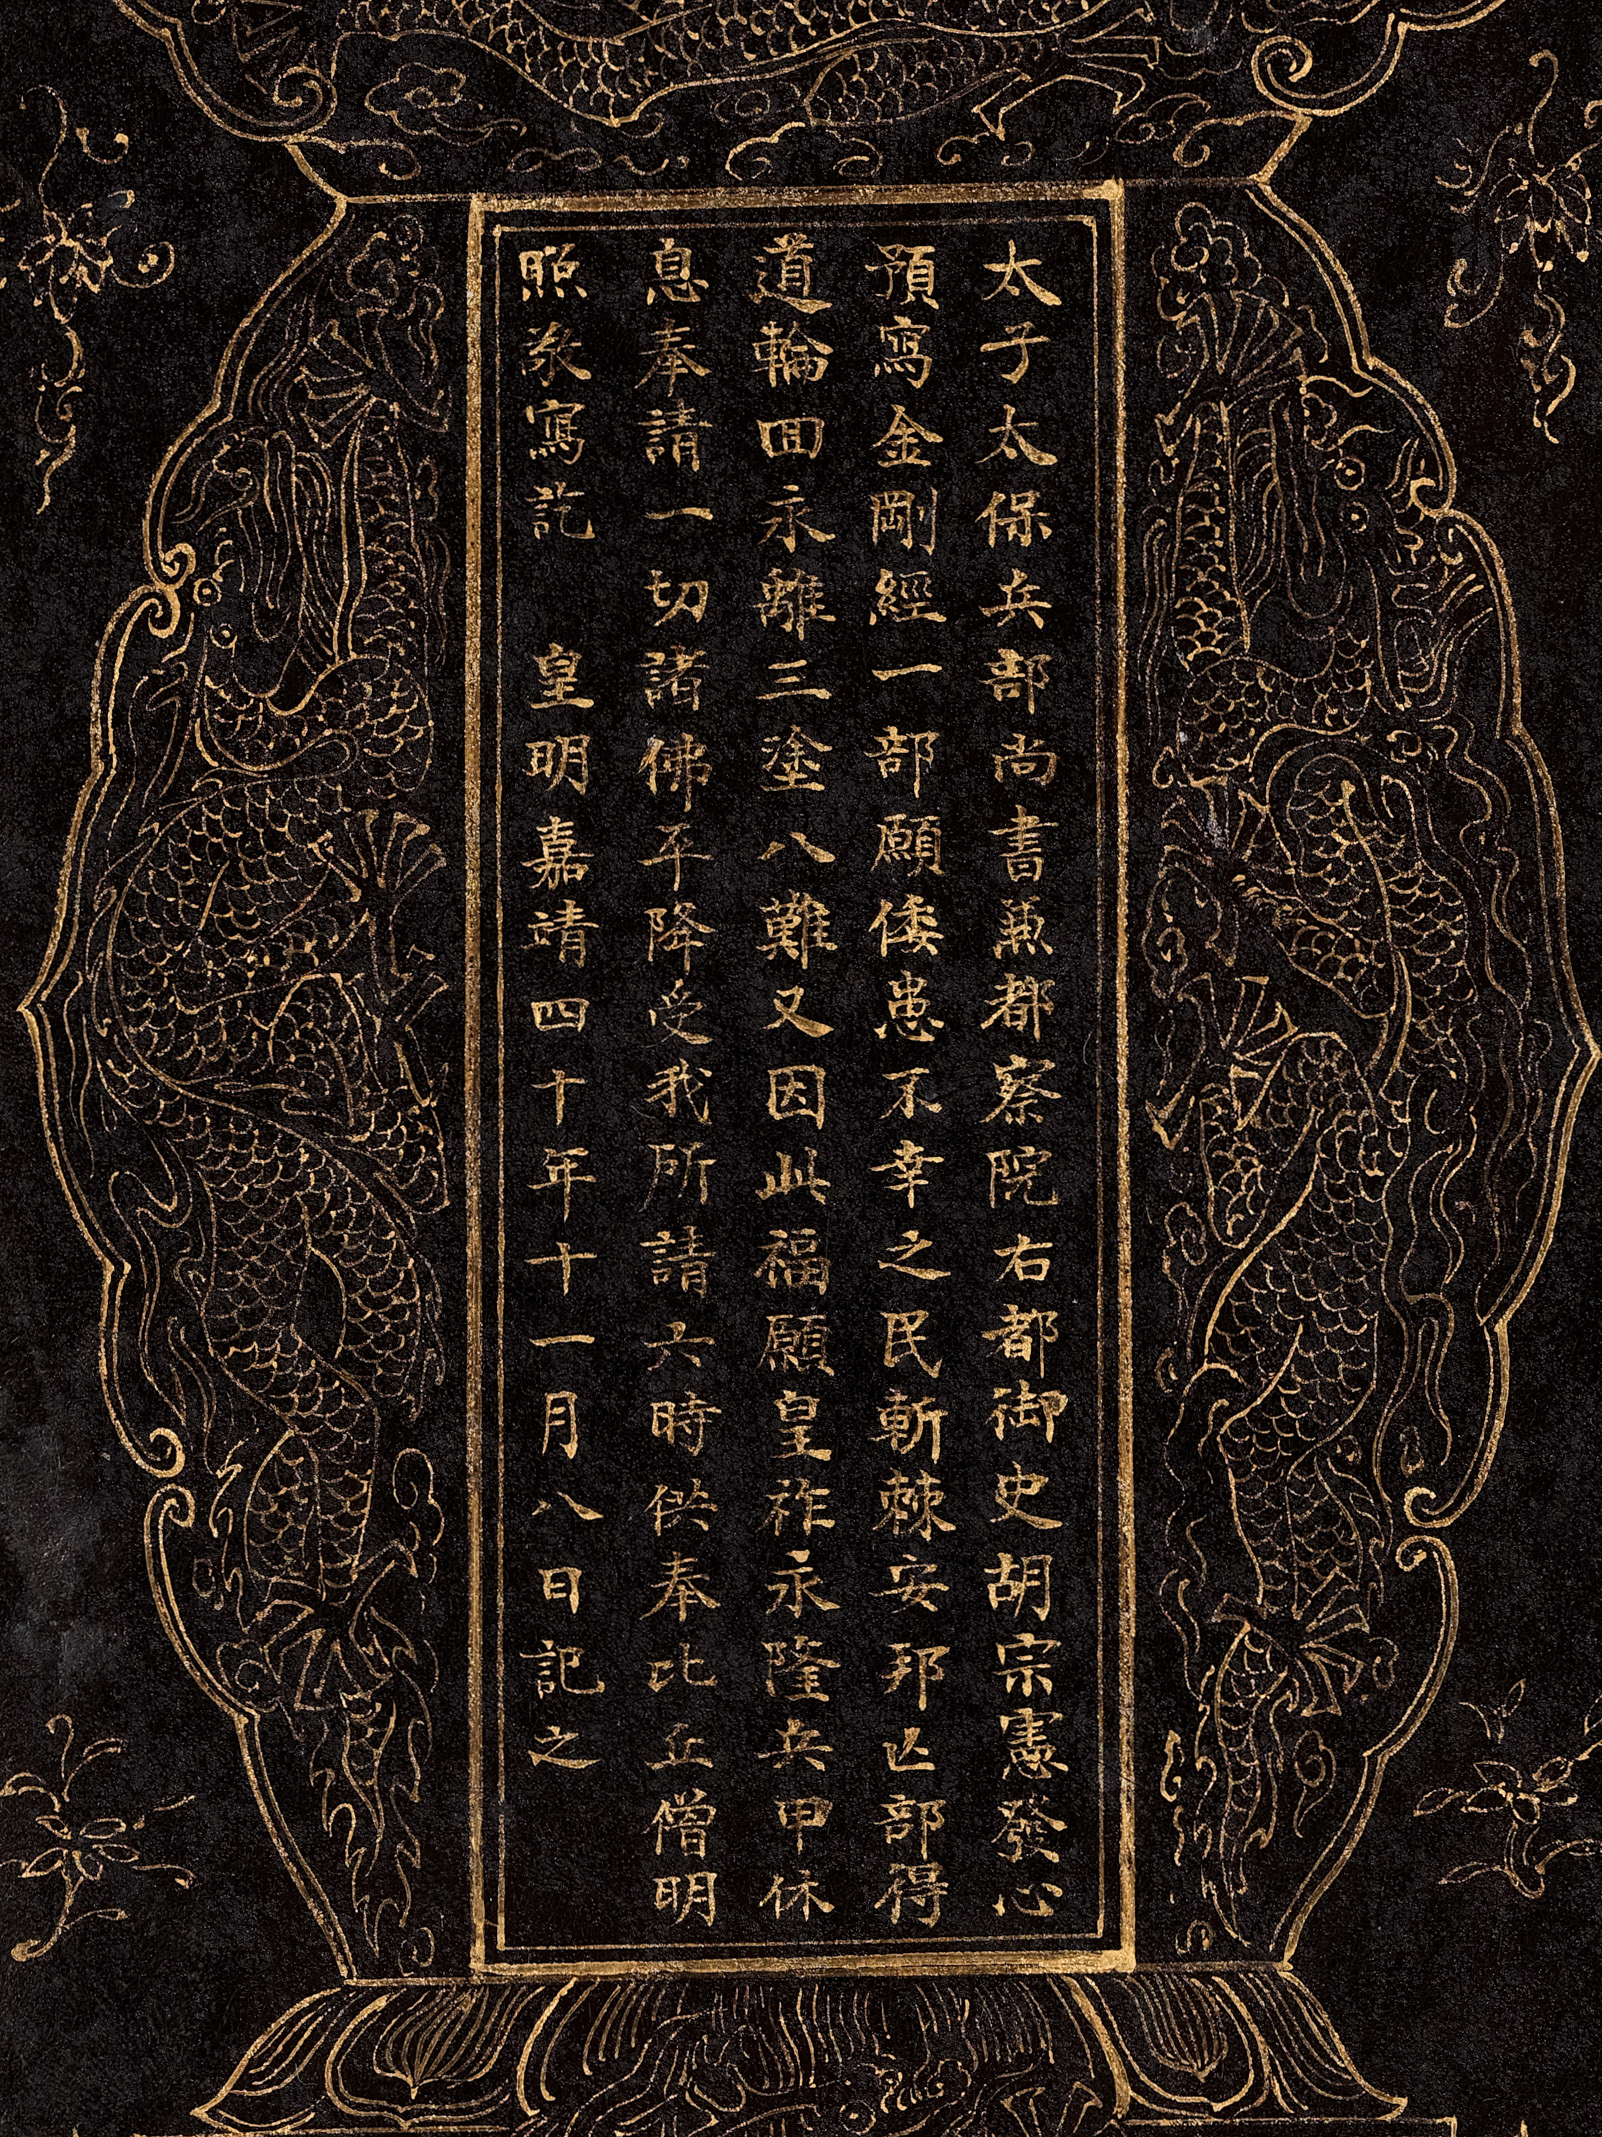 太子太保兵部尚書兼都察院右都御史胡宗憲發心
預寫金剛經一部願倭患不幸之民斬棘安邦亡部得
道輪回永離三塗八難又因此福願皇祚永隆兵甲休
息奉請一切諸佛平降受我所請六時供奉比丘僧明
照敬寫訖 皇明嘉靖四十年十一月八日記之